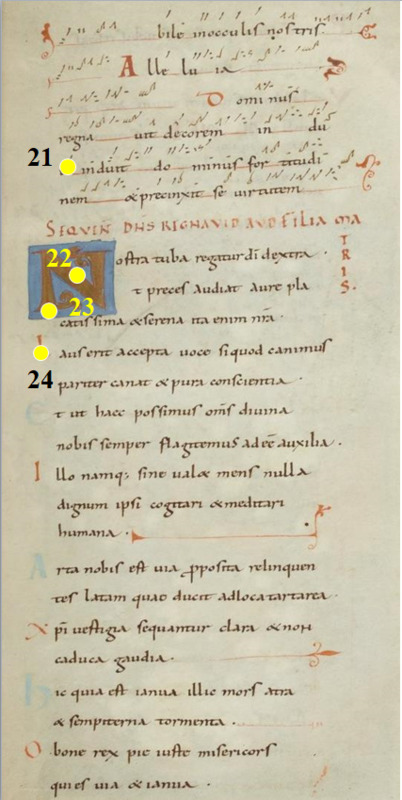 bile inocculis nostris.
Alle lu ia
D omi nus̄
regna uit decorem in du
21 induit do minus for titudi
nem & precinxit se uirtutem
SEQUEÑ DN̄S REGNAVIT AVD FILIA MA
TRIS.
22 N ostra tuba regatur dī dextra ·
23 t preces audiat aure pla
catissima & serena ita enim nr̄a
24 aus erit accepta uoce siquod canimus
pariter canat & pura conscientia ·
E t ut haec possimus om̄s diuina
nobis semper flagitemus adeē auxilia ·
I llo namq; sine ualet mens nulla
dignum ipsi cogitari & meditari
humana ·
A rta nobis est uia p̄posita relinquen
tes latam quae ducit adloca tartarea ·
X p̄i uestigia sequantur clara & non
caduca gaudia ·
h ic quia est ianua illic mors atra
& sempiterna tormenta ·
O bone rex pie iuste misericors
qui es uia & ianua ·